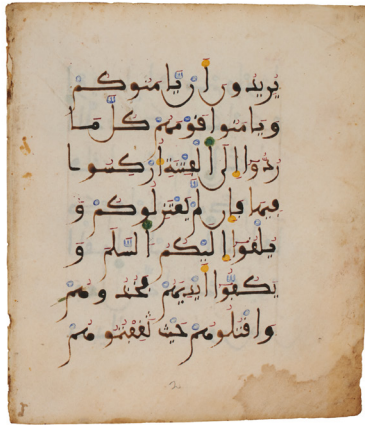 يُرِيدُونَ أَنْ يَّامَنُوكُمْ
وَيَامَنُوا قَوْمَهُمْ كُلَّ مَا
رُدُّوٓا إِلَى ٱلْفِتْنَةِ أُرْكِسُوا
فِيهَا فَإِن لَّمْ يَعْتَزِلُوكُمْ وَ
يُلْقُوٓا إِلَيْكُمُ ٱلسَّلَمَ وَ
يَكُفُّوٓا أَيْدِيَهُمْ فَخُذُوهُمْ
وَاقْتُلُوهُمْ حَيْثُ ثَقِفْتُمُوهُمْ